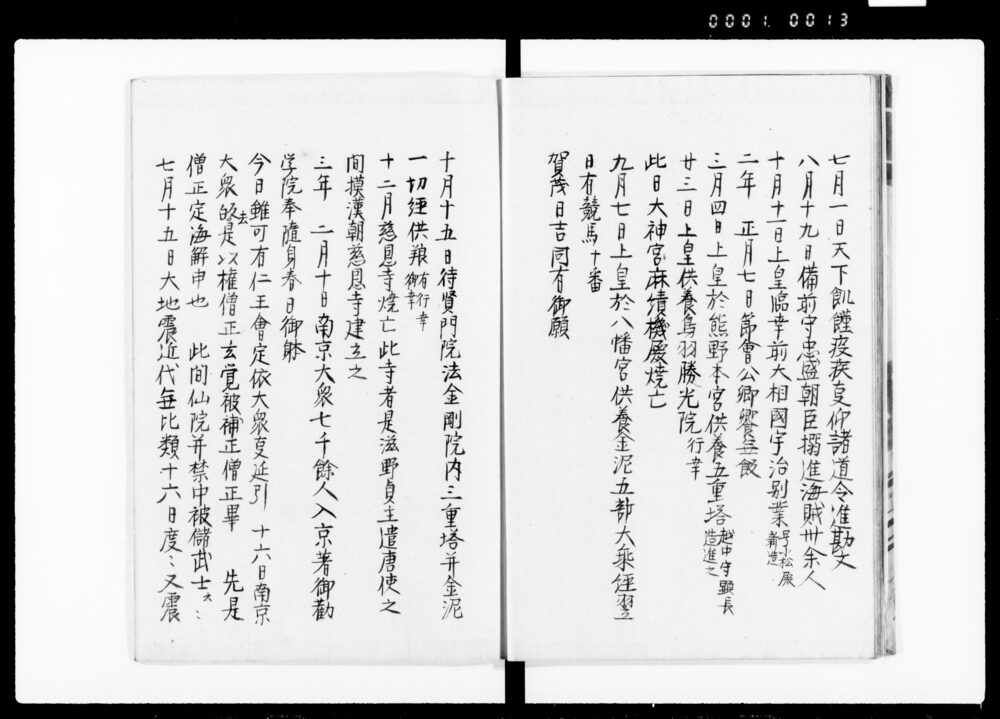 0001 0013
七月一日天下飢饉疫疾事仰諸道令進勘文
八月十九日備前守忠盛朝臣搦進海賊卅余人
十月十一日上皇臨幸前大相國宇治別業号小松殿新造
二年 正月七日節會公卿饗無飯
三月四日上皇於熊野本宮供養五重塔越中守顕長造進之
廿三日上皇供養鳥羽勝光院行幸
此日大神宮麻績機殿焼亡
九月七日上皇於八幡宮供養金泥五部大乗経翌
日有競馬十番
賀茂日吉同有御願
十月十五日待賢門院法金剛院内三重塔并金泥
一切経供養有行幸御幸
十二月慈恩寺焼亡此寺者是滋野貞主遣唐使之
間摸漢朝慈恩寺建立之
三年 二月十日南京大衆七千餘人入京著御勧
学院奉随身春日御躰
今日雖可有仁王會定依大衆事延引 十六日南京
大衆帰去是以権僧正玄覚被補正僧正畢 先是
僧正定海解申也 此間仙院并禁中被儲武士々々
七月十五日大地震近代毎比類十六日度々又震